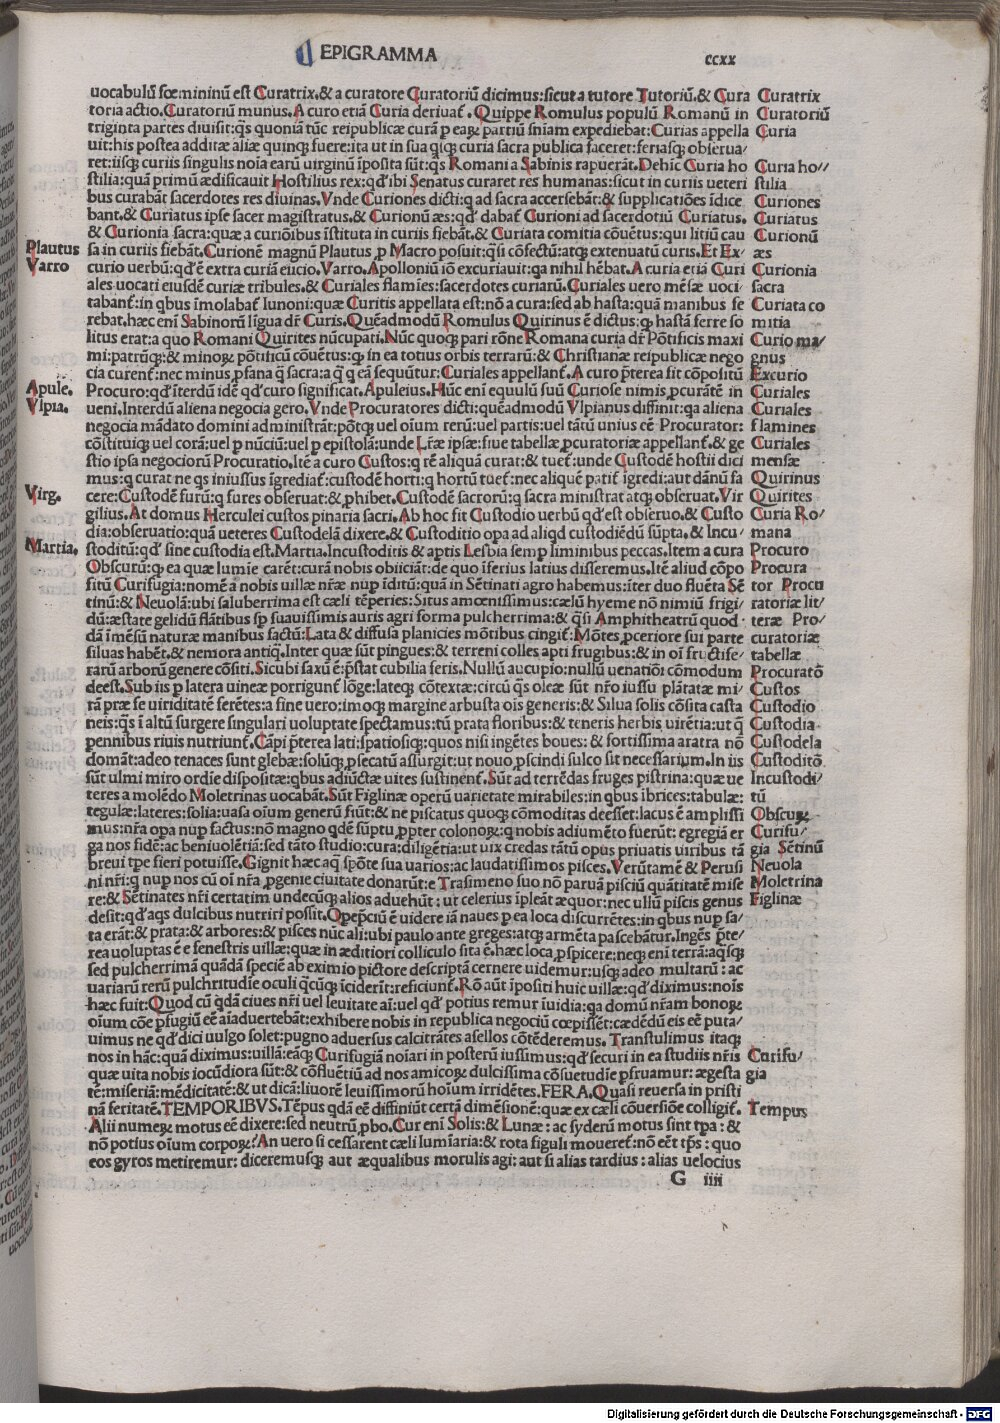 EPIGRAMMA
ccxx
uocabulũ fœmininũ est Curatrix.& a curatore Curatoriũ dicimus:sicut a tutore Tutoriũ.& Cura
toria actio.Curatoriũ munus.A curo etiã Curia deriuat᷑. Quippe Romulus populũ Romanũ in
triginta partes diuisit:q̃s quoniã tũc reipublicæ curã ꝑ eaꝝ partiũ sñiam expediebat: Curias appella
uit:his postea additæ aliæ quinqꝫ fuere:ita ut in sua q̃iqꝫ curia sacra publica faceret:feriasqꝫ obserua/
ret:iisqꝫ curiis singulis noĩa earũ uirginũ ĩposita sũt:q̃s Romani a Sabinis rapuerãt.Dehĩc Curia ho
stilia:quã primũ ædificauit Hostilius rex:qd' ibi Senatus curaret res humanas:sicut in curiis ueteri
bus curabãt sacerdotes res diuinas. Vnde Curiones dicti:q ad sacra accersebãt:& supplicatiões ĩdice
bant.& Curiatus ipse sacer magistratus.& Curionũ æs:qd' dabat᷑ Curioni ad sacerdotiũ Curiatus.
& Curionia sacra:quæ a curiõibus ĩstituta in curiis fiebãt.& Curiata comitia cõuẽtus:qui litiũ cau
sa in curiis fiebãt.Curionẽ magnũ Plautus ꝓ Macro posuit:q̃si cõfectũ:atqꝫ extenuatũ curis.Et Ex/
curio uerbũ:qd' ẽ extra curiã eiicio.Varro.Apolloniũ iõ excuriauit:qa nihil hẽbat.A curia etiã Curi
ales uocati eiusdẽ curiæ tribules.& Curiales flamĩes:sacerdotes curiarũ.Curiales uero mẽsæ uoci
tabant᷑:in qbus ĩmolabat᷑ Iunoni:quæ Curitis appellata est:nõ a cura:sed ab hasta:quã manibus se
rebat.hæc enĩ Sabinorũ lĩgua dr̃ Curis.Quẽadmodũ Romulus Quirinus ẽ dictus:qꝫ hastã ferre so
litus erat:a quo Romani Quirites nũcupati.Nũc quoqꝫ pari rõne Romana curia dr̃ Põtificis maxi
mi:patrũqꝫ:& minoꝝ põtificũ cõuẽtus:qꝫ ĩn ea totius orbis terrarũ:& Christianæ reipublicæ nego
cia curent᷑:nec minus ꝓfana q̃ sacra:a q̃ q eã sequũtur: Curiales appellant᷑.A curo ꝑterea fit cõpositũ
Procuro:qd' ĩterdũ idẽ qd' curo significat.Apuleius.Hũc enĩ equulũ suũ Curiose nimis ꝓcurãte in
ueni.Interdũ aliena negocia gero.Vnde Procuratores dicti:quẽadmodũ Vlpianus diffinit:qa aliena
negocia mãdato domini administrãt:põtqꝫ uel oĩum rerũ:uel partis:uel tãtũ unius eẽ Procurator:
cõstituiqꝫ uel corã:uel ꝑ nũciũ:uel ꝑ epistolã:unde Lr̃æ ipsæ:siue tabellæ ꝓcuratoriæ appellant᷑.& ge
stio ipsa negociorũ Procuratio.Itẽ a curo Custos:q rẽ aliquã curat:& tuet᷑:unde Custodẽ hostii dici
mus:q curat ne qs iniussus ĩgrediat᷑:custodẽ horti:q hortũ tuet᷑:nec aliquẽ patit᷑ ĩgredi:aut dãnũ fa
cere:Custodẽ furũ:q fures obseruat:& ꝓhibet.Custodẽ sacrorũ:q sacra ministrat atqꝫ obseruat.Vir
gilius.At domus Herculei custos pinaria sacri.Ab hoc fit Custodio uerbũ qd' est obseruo.& Custo
dia:obseruatio:quã ueteres Custodelã dixere.& Custoditio opa ad aliqd custodiẽdũ sũpta.& Incu/
stoditũ:qd' sine custodia est.Martia.Incustoditis & aptis Lesbia semꝑ liminibus peccas.Item a cura
Obscurũ:qꝫ ea quæ lumie carẽt:curã nobis obiiciãt:de quo ĩferius latius disseremus.Itẽ aliud cõpo
sitũ Curifugia:nomẽ a nobis uillæ nr̃æ nup ĩditũ:quã in Sẽtinati agro habemus:iter duo fluẽta Sẽ
tinũ:& Neuolã:ubi saluberrima est cæli tẽperies:Situs amœnissimus:cælũ hyeme nõ nimiũ frigi/
dũ:æstate gelidũ flãtibus sp suauissimis auris agri forma pulcherrima:& q̃si Amphitheatrũ quod
dã ĩmẽsũ naturæ manibus factũ:Lata & diffusa planicies mõtibus cingit᷑:Mõtes ꝓceriore sui parte
siluas habẽt:& nemora antiq̃.Inter quæ sũt pingues:& terreni colles apti frugibus:& in oĩ fructise/
rarũ arborũ genere cõsiti.Sicubi saxũ ẽ:ꝑstat cubilia feris.Nullũ aucupio:nullũ uenatiõi cõmodum
deest.Sub iis ꝑ latera uineæ porrigunt᷑ lõge:lateqꝫ cõtextæ:circũ q̃s oleæ sũt nr̃o iussu plãtatæ mi/
rã præ se uiriditatẽ ferẽtes:a fine uero:imoqꝫ margine arbusta oĩs generis:& Silua solis cõsita casta
neis:q̃s ĩ altũ surgere singulari uoluptate spectamus:tũ prata floribus:& teneris herbis uirẽtia:ut q̃
pennibus riuis nutriunt᷑.Cãpi ꝑterea lati:spatiosiqꝫ:quos nisi ingẽtes boues:& fortissima aratra nõ
domãt:adeo tenaces sunt glebæ:solũqꝫ ꝓsecatũ assurgit:ut nouo ꝓscindi sulco sit necessarium.In iis
sũt ulmi miro ordĩe dispositæ:qbus adiũctæ uites sustinent᷑.Sũt ad terrẽdas fruges pistrina:quæ ue
teres a molẽdo Moletrinas uocabãt.Sũt Figlinæ operũ uarietate mirabiles:in qbus ĩbrices:tabulæ:
tegulæ:lateres:solia:uasa oĩum generũ fiũt:& ne piscatus quoqꝫ cõmoditas deesset:lacus ẽ amplissi
mus:nr̃a opa nup factus:nõ magno qdẽ sũptu ꝓpter colonoꝝ:q nobis adiumẽto fuerũt:egregiã er
ga nos fidẽ:ac beniuolẽtiã:sed tãto studio:cura:diligẽtia:ut uix credas tãtũ opus priuatis uiribus tã
breui tp̃e fieri potuisse.Gignit hæc aq̃ spõte sua uarios:ac laudatissimos pisces.Verũtamẽ & Perusi
ni nr̃i:q nup nos cũ oĩ nr̃a ꝓgenie ciuitate donarũt:e Trasimeno suo nõ paruã pisciũ quãtitatẽ mise
re:& Sẽtinates nr̃i certatim undecũqꝫ alios aduehũt:ut celerius ĩpleãt æquor:nec ullũ piscis genus
desit:qd' aqs dulcibus nutriri possit.Opeꝑciũ ẽ uidere iã naues ꝑ ea loca discurrẽtes:in qbus nup sa/
ta erãt:& prata:& arbores:& pisces nũc ali:ubi paulo ante greges:atqꝫ armẽta pascebãtur.Ingẽs ꝑte/
rea uoluptas ẽ e fenestris uillæ:quæ in æditiori colliculo sita ẽ.hæc loca ꝓspicere:neqꝫ enĩ terrã:aq̃sqꝫ
sed pulcherrimã quãdã speciẽ ab eximio pictore descriptã cernere uidemur:usqꝫ adeo multarũ: ac
uariarũ rerũ pulchritudĩe oculi q̃cũqꝫ ĩciderĩt:reficiunt᷑.Rõ aũt ĩpositi huic uillæ:qd' diximus:noĩs
hæc fuit:Quod cũ qdã ciues nr̃i uel leuitate aĩ:uel qd' potius remur ĩuidia:qa domũ nr̃am bonoꝝ
oĩum cõe ꝓfugiũ eẽ aĩaduertebãt:exhibere nobis in republica negociũ cœpissẽt:cædẽdũ eis eẽ puta/
uimus ne qd' dici uulgo solet:pugno aduersus calcitrãtes asellos cõtẽderemus. Transtulimus itaqꝫ
nos in hãc:quã diximus:uillã:eãqꝫ Curifugiã noĩari in posterũ iussimus:qd' securi in ea studiis nr̃is
quæ uita nobis iocũdiora sũt:& cõfluẽtiũ ad nos amicoꝝ dulcissima cõsuetudĩe ꝑfruamur:ægesta
tẽ:miseriã:mẽdicitatẽ:& ut dicã:liuorẽ leuissimorũ hoĩum irridẽtes.FERA.Quasi reuersa in pristi
nã feritatẽ.TEMPORIBVS.Tẽpus qdã eẽ diffiniũt certã dimẽsionẽ:quæ ex cæli cõuersiõe colligit᷑.
Alii numeꝝ motus eẽ dixere:sed neutrũ ꝓbo.Cur enĩ Solis:& Lunæ: ac syderũ motus sint tpa: &
nõ potius oĩum corpoꝝ?An uero si cessarent cæli lumĩaria:& rota figuli moueret᷑:nõ eẽt tp̃s: quo
eos gyros metiremur: diceremusqꝫ aut æqualibus morulis agi: aut si alias tardius: alias uelocius
G iiii
Plautus
Varro
Apule.
Vlpia.
Virg.
Martia.
Curatrix
Curatoriũ
Curia
Curia ho//
stilia
Curiones
Curiatus
Curionũ
æs
Curionia
sacra
Curiata co
mitia
Curio ma/
gnus
Excurio
Curiales
Curiales
flamines
Curiales
mensæ
Quirinus
Quirites
Curia Ro/
mana
Procuro
Procura
tor Procu
ratoriæ lit/
teræ Pro/
curatoriæ
tabellæ
Procuratõ
Custos
Custodio
Custodia
Custodela
Custoditõ
Incustodi/
tũ
Obscuꝝ
Curifu/
gia Sẽtinũ
Neuola
Moletrina
Figlinæ
Curifu/
gia
Tempus
Digitalisierung gefördert durch die Deutsche Forschungsgemeinschaft - DFG